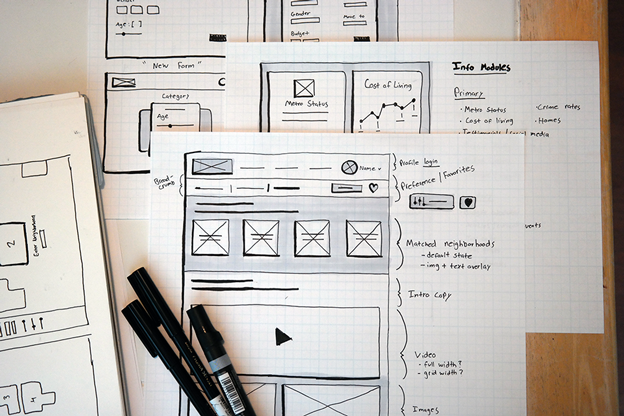 Age: [ ]
Gender
Budget
Move to
"New Form"
Category
Age
Metro Status
Cost of Living
Info Modules
Primary
· Metro Status
· Cost of living
· Crime rates
· Homes
media
Bread-
crumb
Name
Profile login
Preference / Favorites
Matched neighborhoods
- default state
- img + text overlay
Intro Copy
Video
· full width?
· grid width?
Images
2